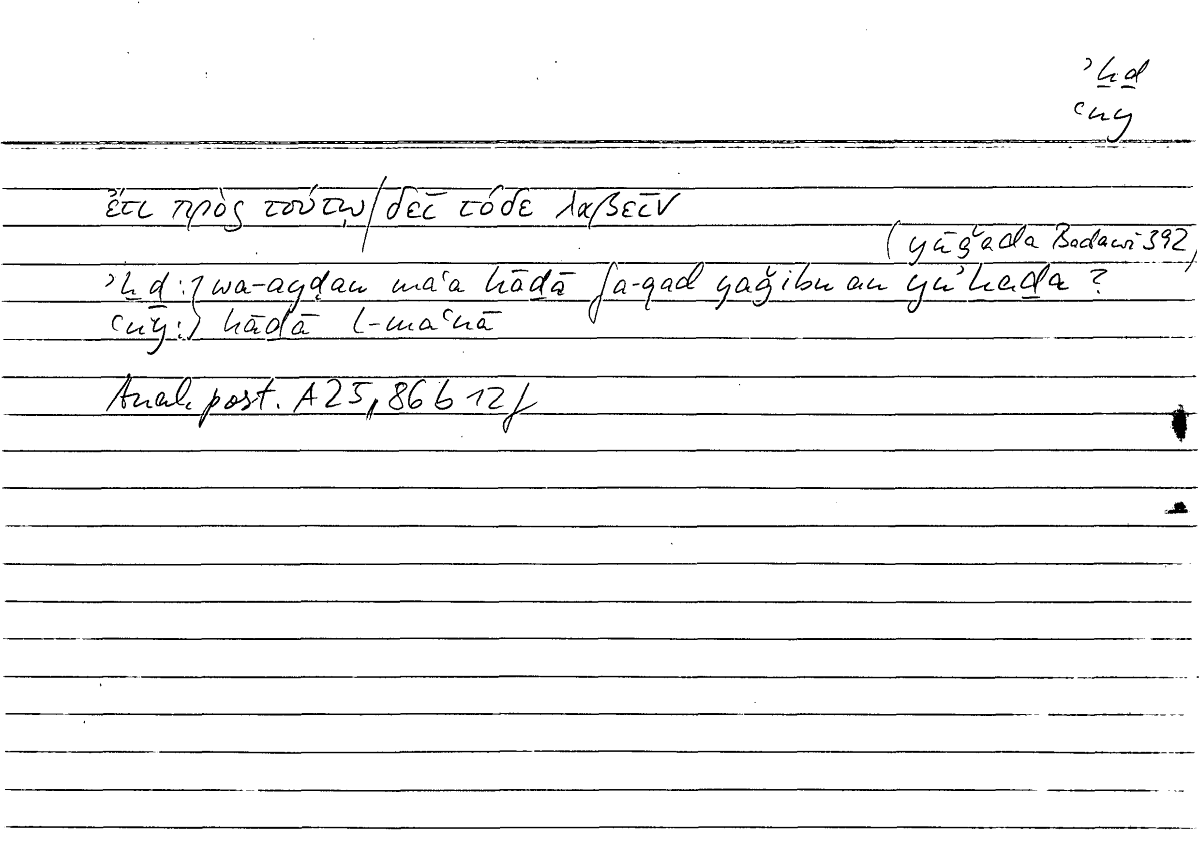 ʾḫḏ
ʿny
ἔτι πρὸς τούτῳ/δεῖ τόδε λαβεῖν
(yūǧada Badawī 392)
ʾḫḏ:} wa-ayḍan maʿa hāḏā fa-qad yaǧibu an yuʾḫaḏa ?
ʿny:} hāḏā l-maʿnā
Anal. post. A 25, 86 b 12 f